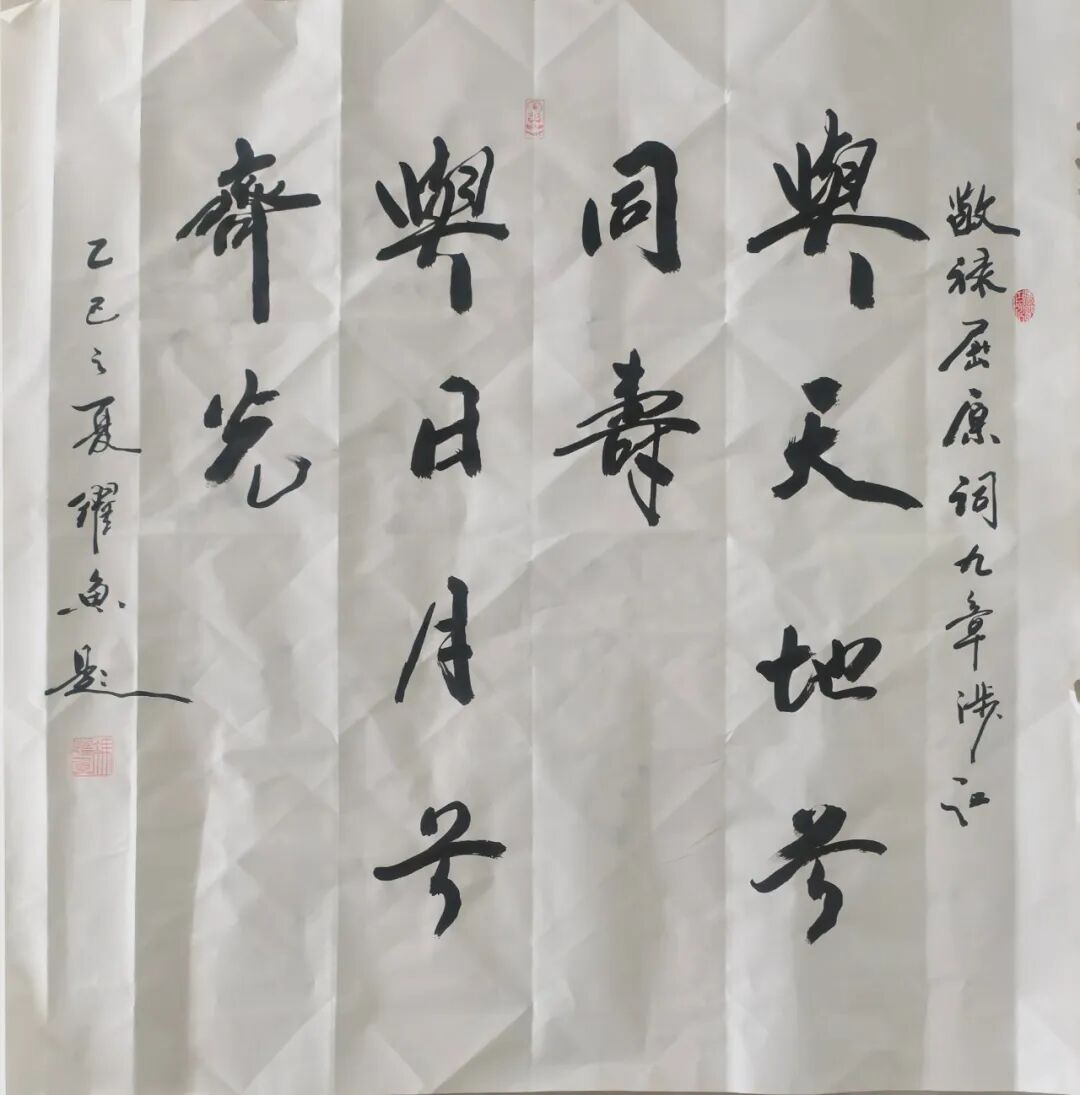 敬禄屈原词九章涉江
與天地兮
同壽
與日月兮
齊光
乙巳之夏耀鱼题